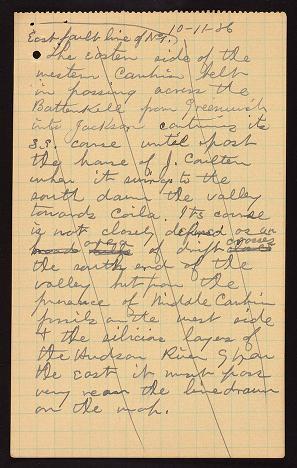 10-11-86
East fault line of N.Y.
The eastern side of the
western Cambrian belt
in passing across the
Battenkill from Greenwich
into Jackson continues its
S.S. course until past
the house of J. Coulten
when it swings to the
south down the valley
towards Coila. Its course
is not closely defined as an
broad area of drift crosses
the south end of the
valley but from the
presence of Middle Cambrian
fossils on the west side
& the silicious layers of
the Hudson River g on
the east it must pass
very near the line drawn
on the map.